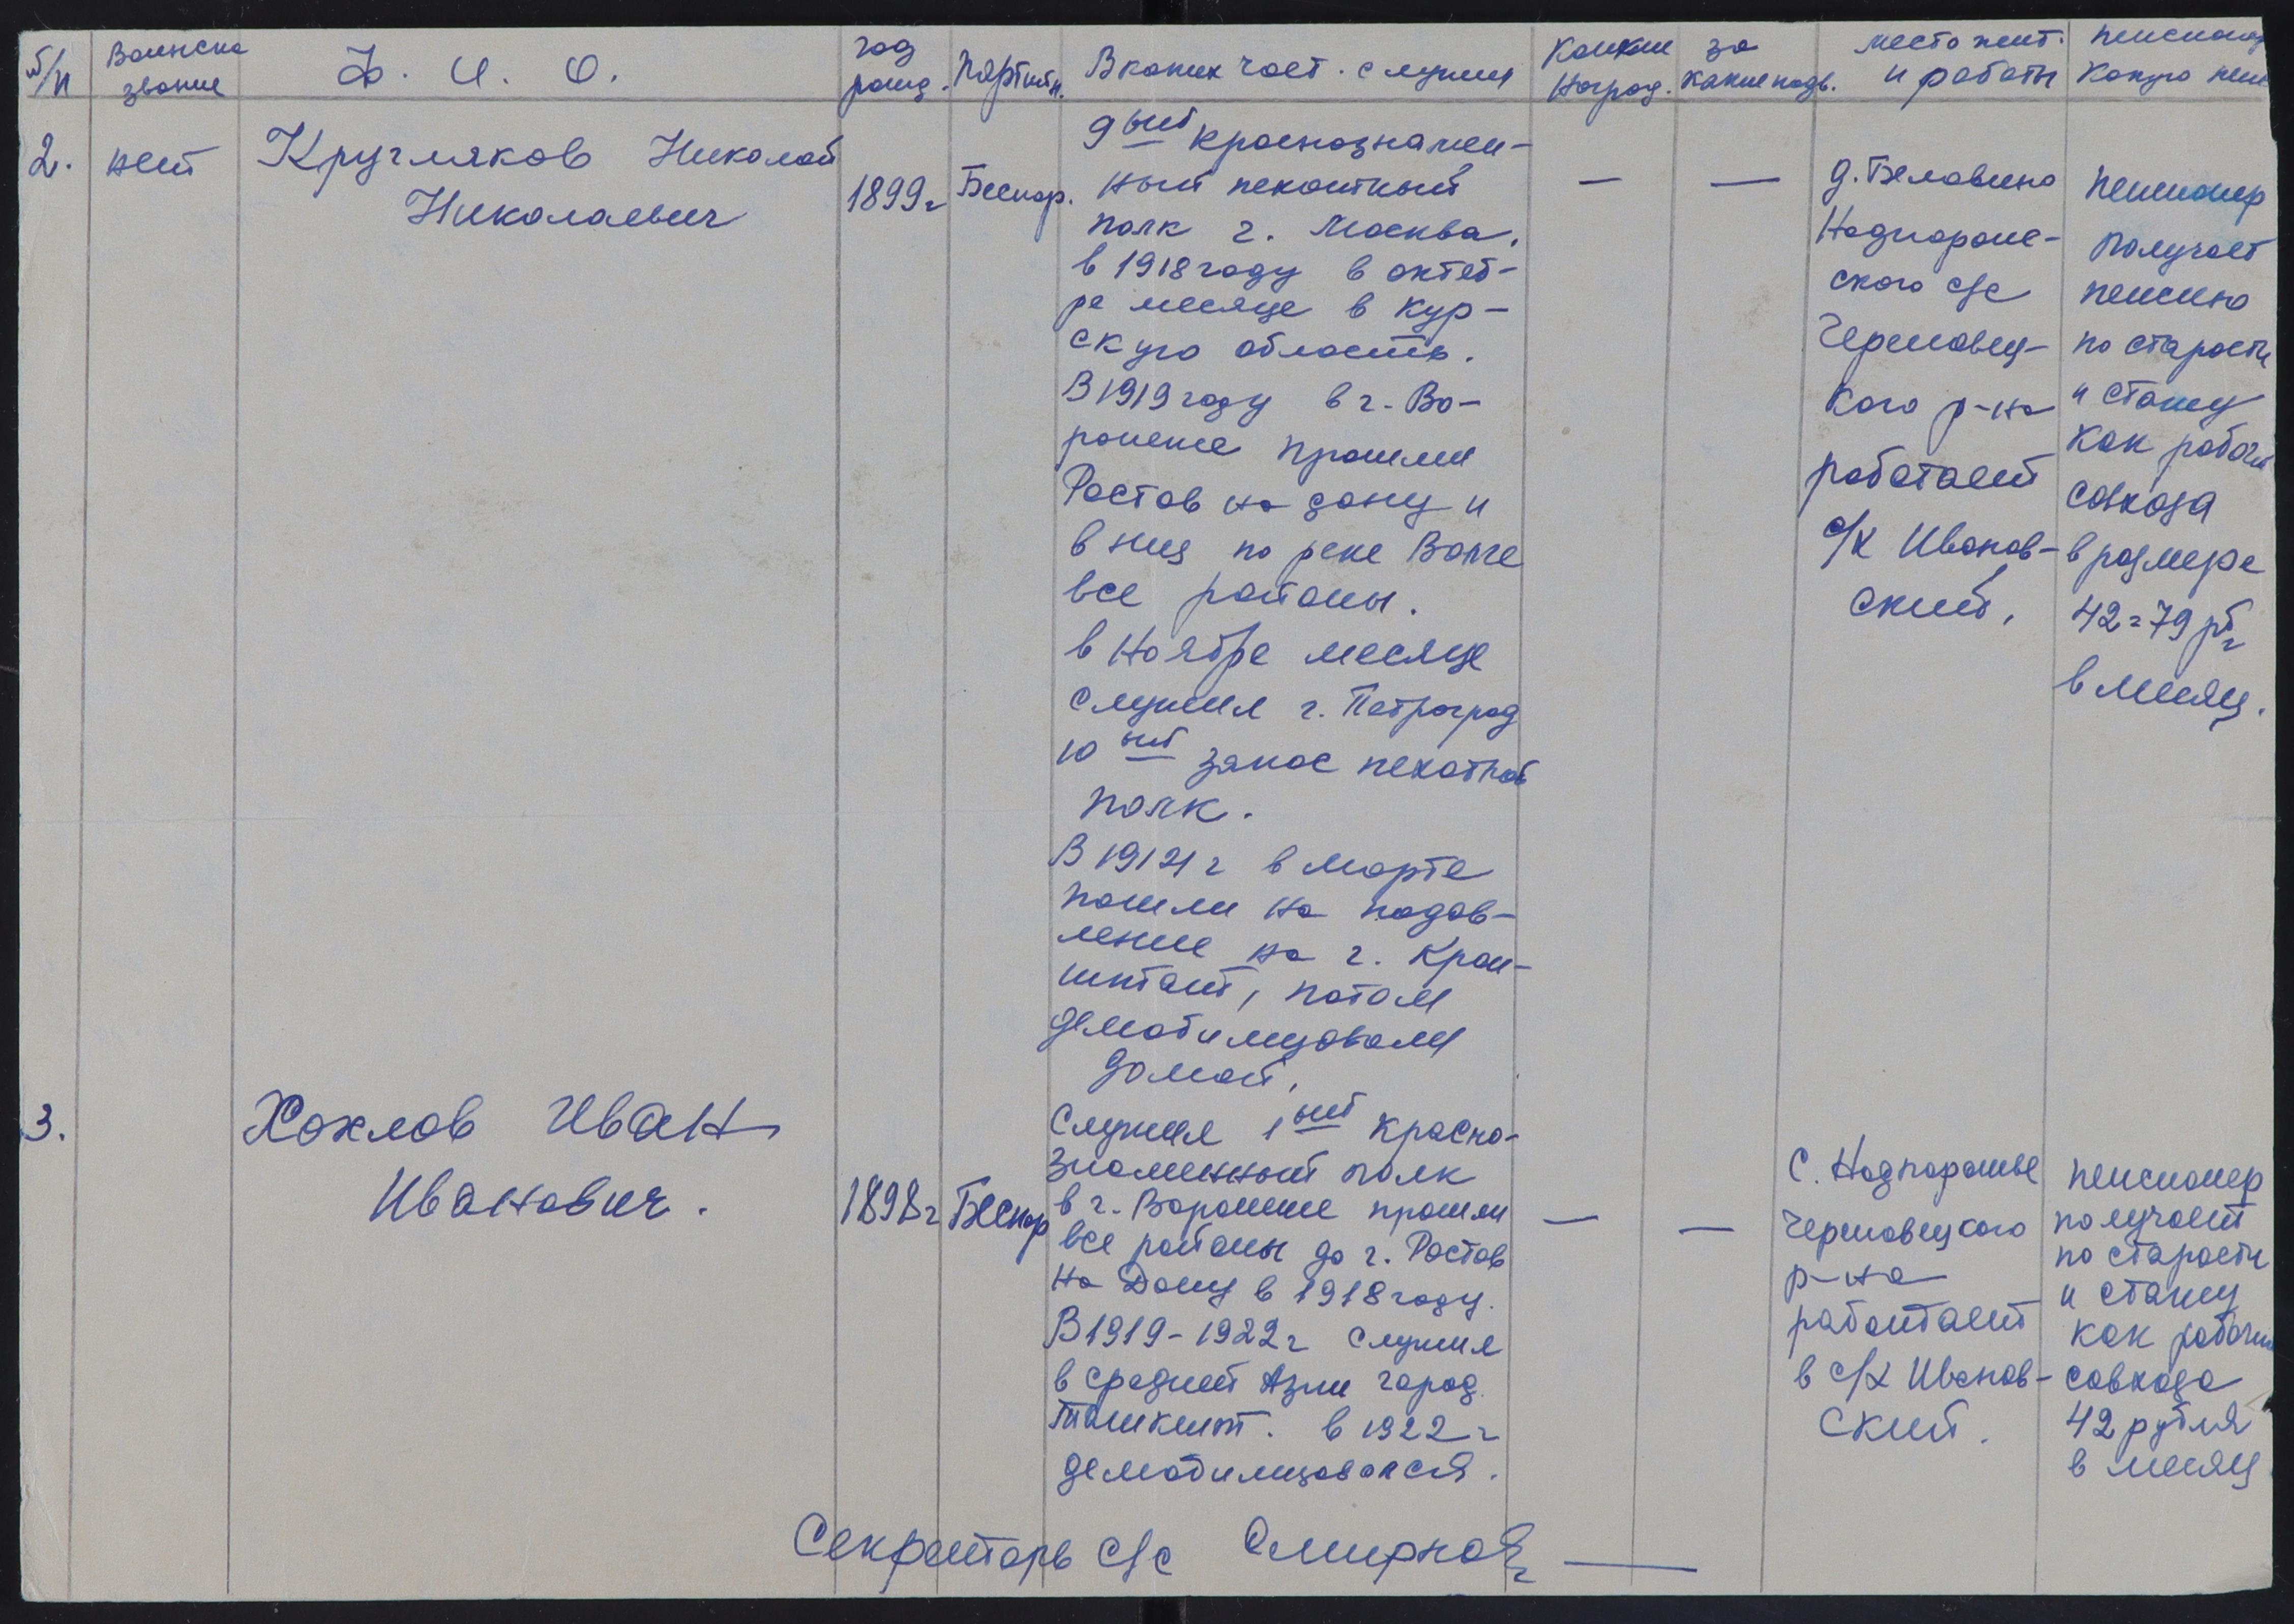 №/п Воинско звание Ф. И. О. год рожд. Партийн. В каких част. служил Какие наград. за какие подв. место жит. и работы пенсионер какую пенс
2. нет Кругляков Николай
Николаевич
1899г
Беспар.
9ый краснознамен-
ный пехотный
полк г. Москва.
в 1918 году в октяб-
ре месяце в Кур-
скую область.
В 1919 году в г. Во-
ронеже прошли
Ростов на дону и
в низ по реке Волге
все районы.
в Ноябре месяце
служил г. Петроград
10ый запас пехотной
полк.
В 1921г в марте
пошли на подав-
ление на г. Крон-
штант, потом
демобилизовали
домой.
—
—
д. Белавино
Надпороже-
ского с/с
Череповец-
кого р-на
работает
с/х Иванов-
ский.
пенсионер
получает
пенсию
по старости
и стажу
как рабочий
совхоза
в размере
42=79 р
в месяц.
3. Хохлов Иван
Иванович.
1898г
Беспар
Служил 1ый красно-
знаменный полк
в г. Воронеже прошли
все районы до г. Ростов
на Дону в 1918 году.
В 1919-1922г служил
в средней Азии город
Ташкент. в 1922г
демобилизовался.
—
—
с. Надпорожье
Череповецкого
р-на
работает
в с/х Иванов-
ский.
пенсионер
получает
по старости
и стажу
как рабочий
совхоза
42 рубля
в месяц
Секретарь с/с Смирнова